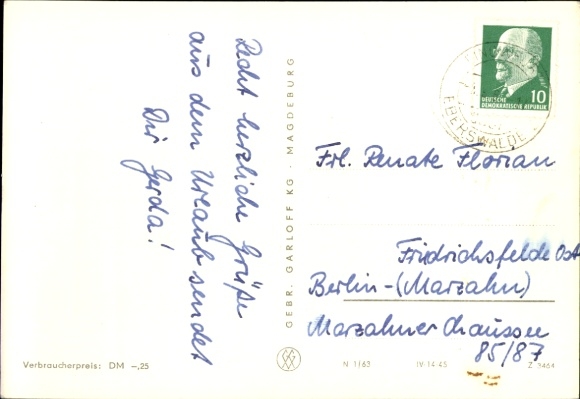 Recht herzliche Grüße
aus dem Urlaub sendet
Dir Gerda!
GEBR. GARLOFF KG · MAGDEBURG
DEUTSCHE
DEMOKRATISCHE REPUBLIK
10
EBERSWALDE
Frl. Renate Florian
Friedrichsfelde Ost
Berlin-(Marzahn)
Marzahner Chaussee
85/87
Verbraucherpreis: DM –,25
N 1163
IV-14-45
Z 3464